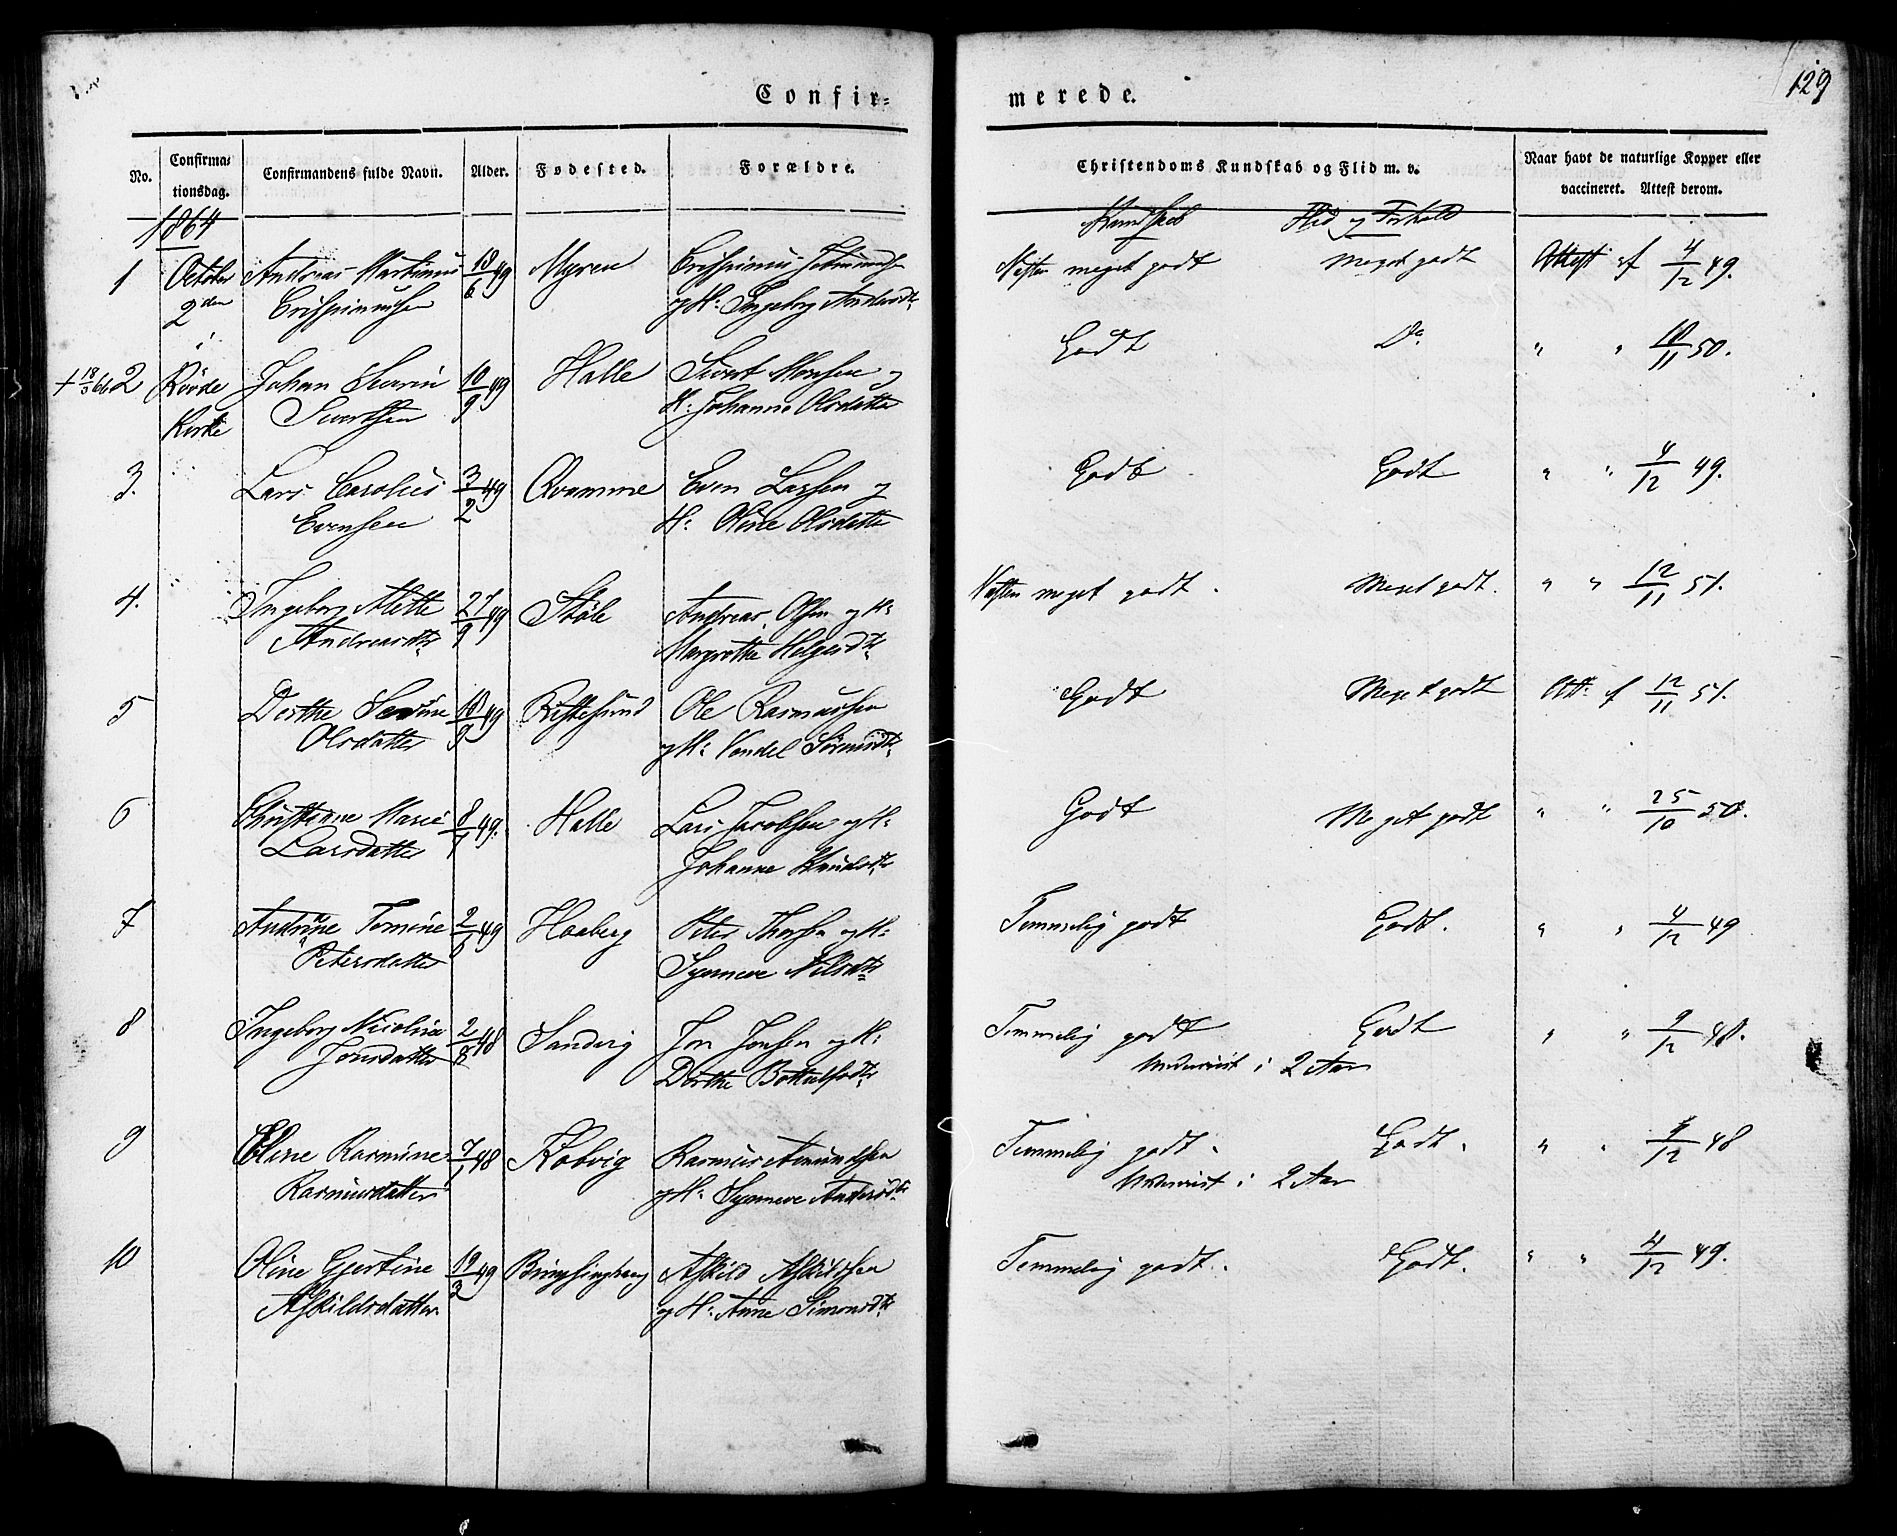 129
Confir= merede.
No. Confirma= tionsdag. Confirmandens fulde Navn. Alder. Fødested. Forældre. Christendoms Kundskab og Flid m. v. Naar havt de naturlige Kopper eller vaccineret. Attest derom.
1864 Kundskab Flid og Forhold
1 October Andreas Martinus 18/6 49 Myren Nesten meget godt Meget godt Attest af 4/12 49.
2den og H: Ingeborg Andersdtr
2 Røvde Johan Severin 10/9 49 Halle Sivert og Godt Do " " 10/11 50.
Kirke Sivertsen H: Johanne Olsdatter
3. Lars Carolius 3/2 49 Qvamme Even Larsen og Godt Godt " " 4/12 49.
Evensen H: Oline Olsdatter
4. Ingeborg Alette 27/9 49 Støle Andreas Olsen og H: Nesten meget godt. Meget godt. " " 12/11 51.
Andreasdtr Margrethe Helgesdtr
5 Dorthe Severine 10/9 49 Ristesund Ole Rasmussen Godt Meget godt Att: af 12/11 51.
Olsdatter og H: Vendel
6 Marie 8/1 49. Halle Lars Jacobsen og H: Godt Meget godt " " 25/10 50.
Larsdatter Johanne Knudsdtr
7 Andrine Tomine 2/5 49 Haaberg Peter og H: Temmelig godt Godt. " " 4/12 49
Petersdatter Synneve Nilsdtr
8 Ingeborg Nicoline 2/8 48 Sandvig Jon Jonsen og H: Temmelig godt Godt " " 9/12 48.
Jonsdatter Dorthe Underviist i 2 Aar
9 Rasmine 7/1 48 Kobvig Rasmus Amundsen Temmelig godt. Godt. " " 9/12 48
Rasmusdatter og H: Synneve Andersdtr Underviist i 2 Aar
10 Oline Gjertine 19/2 49 Askild Askildsen Temmelig godt. Godt. " " 4/12 49.
Askildsdatter og H: Anne Simonsdtr